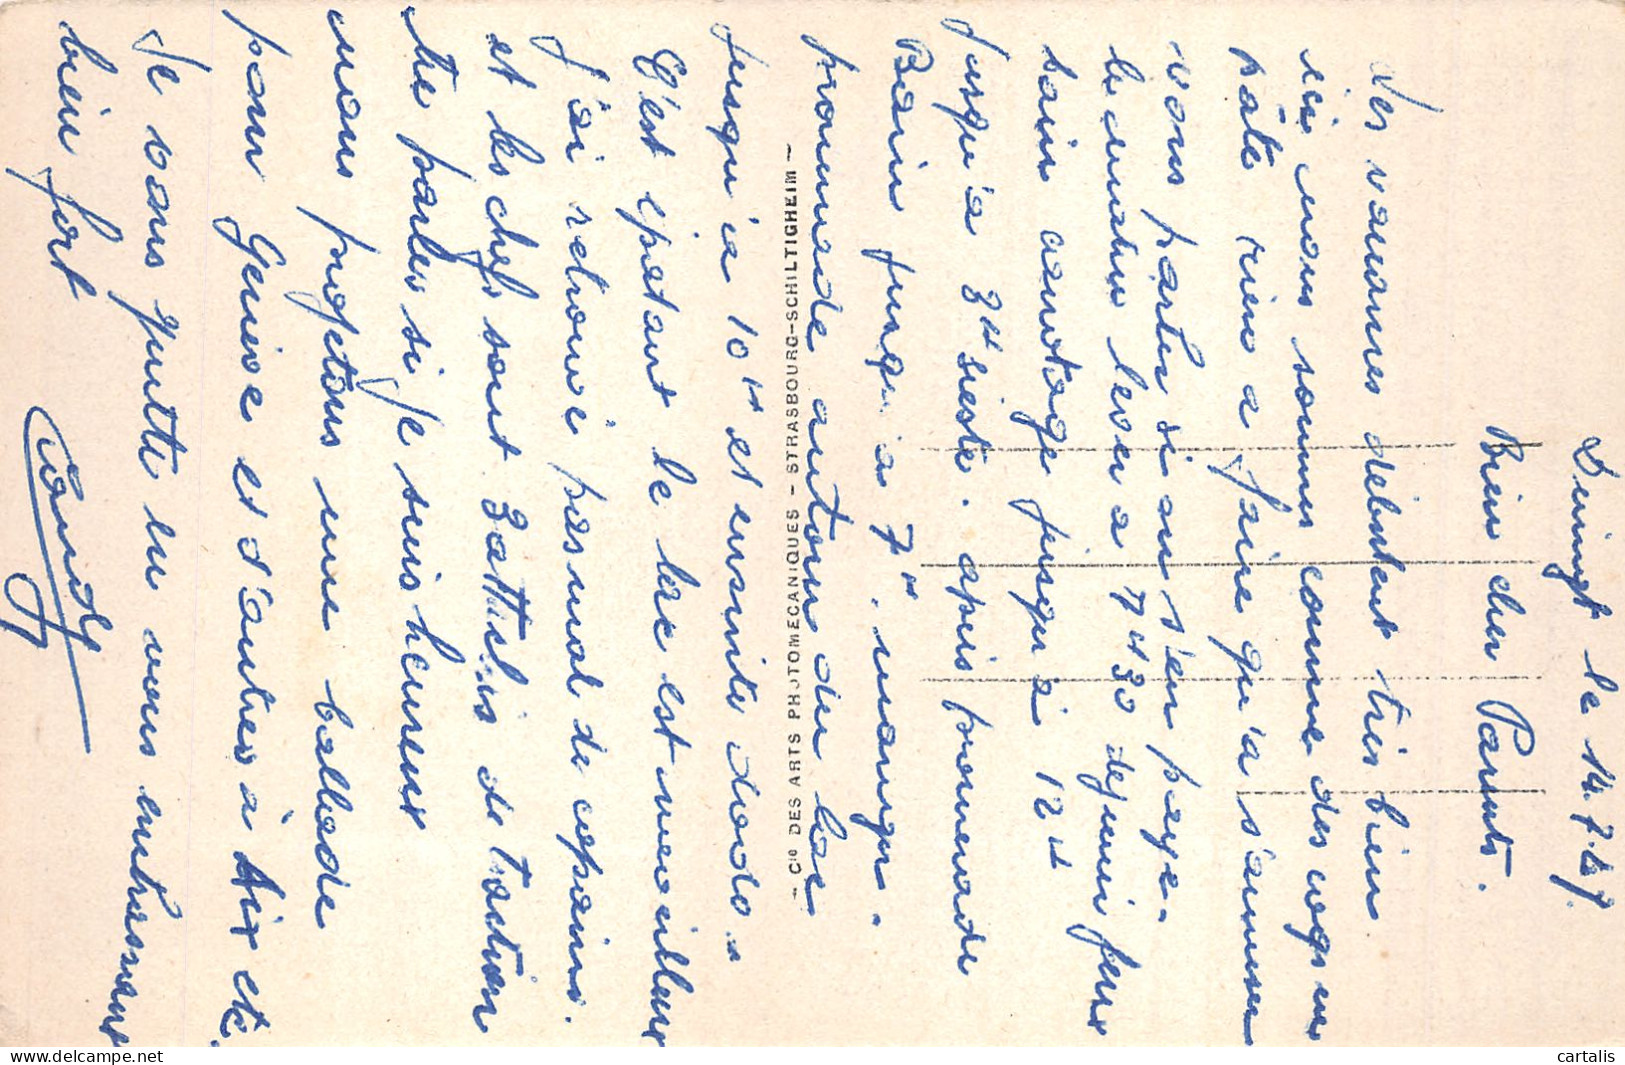 Duingt le 14.7.47.
Bien cher Parents.
Les vacances débutent très bien
ici nous sommes comme des coqs en
pâte rien a faire qu'a s'amuser
vous parlez si on s'en paye.
le matin lever a 7H30 dejeuner puis
bain canotage jusqu'à 12H
jusqu'a 3H sieste. apres promenade
Bain jusqu'a 7H. manger.
promenade autour du lac
jusqu'a 10H et ensuite dodo.
C'est épatant le lac est merveilleux
J'ai retrouvé pas mal de copains.
et les chefs sont 3 de traction
te parles si je suis heureux
nous projetons une ballade
pour Genève et d'autres à Aix etc.
Je vous quitte en vous embrassant
bien fort
- Cie DES ARTS PHOTOMECANIQUES - STRASBOURG-SCHILTIGHEIM -
cartalis